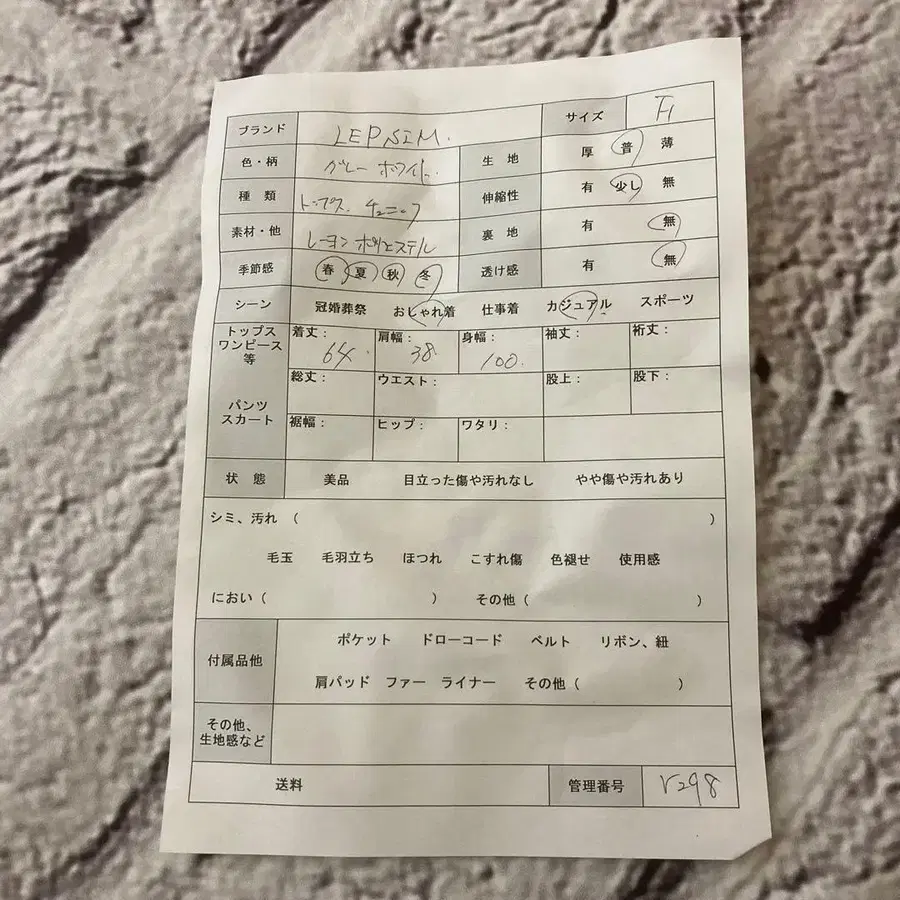 ブランド LEPSIM. サイズ F
色・柄 グレー ホワイト. 生地 厚 普 薄
種類 トップス. チュニック 伸縮性 有 少し 無
素材・他 レーヨン ポリエステル 裏地 有 無
季節感 春 夏 秋 冬 透け感 有 無
シーン 冠婚葬祭 おしゃれ着 仕事着 カジュアル スポーツ
トップス
ワンピース
等
着丈: 64. 肩幅: 38 身幅: 100. 袖丈: 裄丈:
パンツ
スカート
総丈: ウエスト: 股上: 股下:
裾幅: ヒップ: ワタリ:
状態 美品 目立った傷や汚れなし やや傷や汚れあり
シミ、汚れ ( )
毛玉 毛羽立ち ほつれ こすれ傷 色褪せ 使用感
におい ( ) その他 ( )
付属品他
ポケット ドローコード ベルト リボン、紐
肩パッド ファー ライナー その他 ( )
その他、
生地感など
送料 管理番号 r298